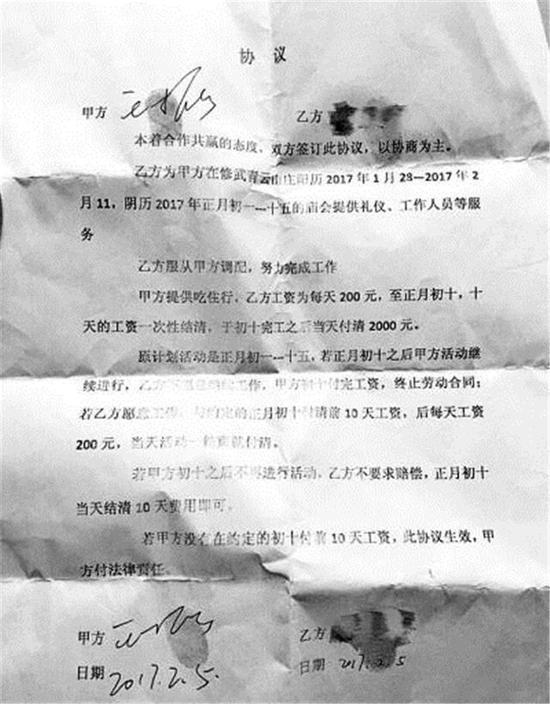 协 议
甲方 乙方
本着合作共赢的态度、双方签订此协议，以协商为主。
乙方为甲方在修武青云山庄阳历 2017 年 1 月 28—2017 年 2
月 11，阴历 2017 年正月初一---十五的庙会提供礼仪、工作人员等服
务
乙方服从甲方调配，努力完成工作
甲方提供吃住行，乙方工资为每天 200 元，至正月初十，十
天的工资一次性结清，于初十完工之后当天付清 2000 元。
原计划活动是正月初一---十五，若正月初十之后甲方活动继
续进行，乙方不愿意继续工作，甲方初十付完工资，终止劳动合同；
若乙方愿意工作，与约定的正月初十付清前 10 天工资，后每天工资
200 元，当天活动一结束就付清。
若甲方初十之后不再进行活动，乙方不要求赔偿，正月初十
当天结清 10 天费用即可。
若甲方没有在约定的初十付前 10 天工资，此协议生效，甲
方付法律责任。
甲方 乙方
日期 2017.2.5. 日期 2017.2.5